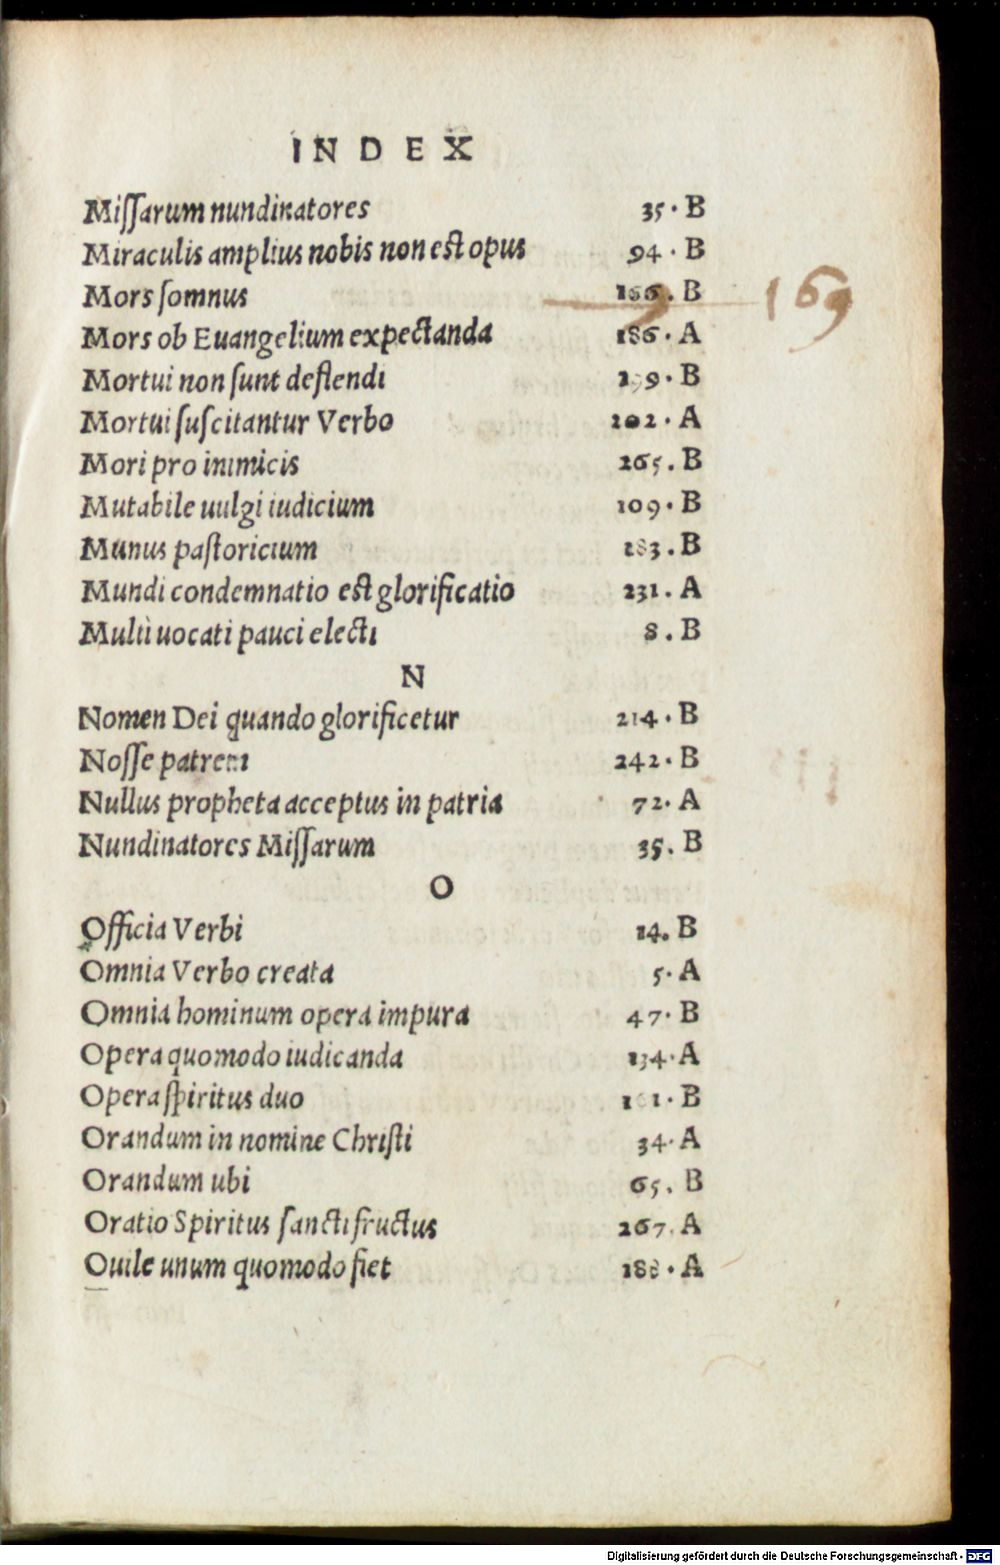 INDEX
Missarum nundinatores 35. B
Miraculis amplius nobis non est opus 94. B
Mors somnus 166. B 169
Mors ob Euangelium expectanda 186. A
Mortui non sunt deflendi 199. B
Mortui suscitantur Verbo 202. A
Mori pro inimicis 265. B
Mutabile uulgi iudicium 109. B
Munus pastoricium 183. B
Mundi condemnatio est glorificatio 231. A
Multi uocati pauci electi 8. B
N
Nomen Dei quando glorificetur 214. B
Nosse patrem 242. B
Nullus propheta acceptus in patria 72. A
Nundinatores Missarum 35. B
O
Officia Verbi 14. B
Omnia Verbo creata 5. A
Omnia hominum opera impura 47. B
Opera quomodo iudicanda 134. A
Opera spiritus duo 161. B
Orandum in nomine Christi 34. A
Orandum ubi 65. B
Oratio Spiritus sancti fructus 267. A
Ouile unum quomodo fiet 188. A
Digitalisierung gefördert durch die Deutsche Forschungsgemeinschaft - DFG